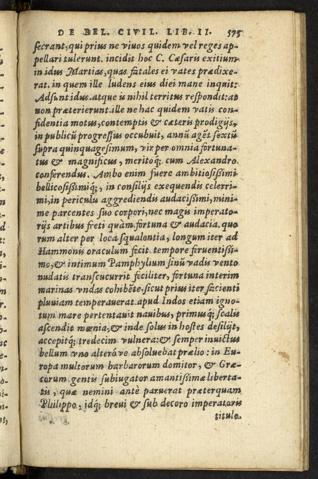 DE BEL. CIVIL. LIB. II. 575
secrant, qui prius ne viuos quidem vel reges ap-
pellari tulerunt. incidit hoc C. Cæsaris exitium
in idus Martias, quas fatales ei vates prædixe-
rat. in quem ille ludens eius diei mane inquit:
Adsunt idus. atque is nihil territus respondit: at
non præterierunt. ille ne hac quidem vatis con-
fidentia motus, contemptis & cæteris prodigijs,
in publicū progressus occubuit, annū agēs sextū
supra quinquagesimum, vir per omnia fortuna-
tus & magnificus, meritoq́; cum Alexandro
conferendus. Ambo enim fuere ambitiosissimi
bellicosissimiq́;, in consilijs exequendis celerri-
mi, in periculis aggrediendis audacissimi, mini-
me parcentes suo corpori, nec magis imperato-
rijs artibus freti quàm fortuna & audacia. quo
rum alter per loca squalentia, longum iter ad
Hammonis oraculum fecit. tempore feruentissi-
mo, & intimum Pamphylium sinū vadis vento
nudatis transcucurrit feliciter, fortuna interim
marinas vndas cohibēte. sicut prius iter faciēti
pluuiam temperauerat. apud Indos etiam igno-
tum mare pertentauit nauibus, primusq́; scalis
ascendit mœnia, & inde solus in hostes desilijt,
accepitq́; tredecim vulnera: & semper inuictus
bellum vno alteróve absoluebat prælio: in Eu-
ropa multorum barbarorum domitor, & Græ-
corum gentis subiugator amantissimæ liberta-
tis, quæ nemini antè paruerat præterquam
Philippo, idq́; breui & sub decoro imperatoris
titulo.